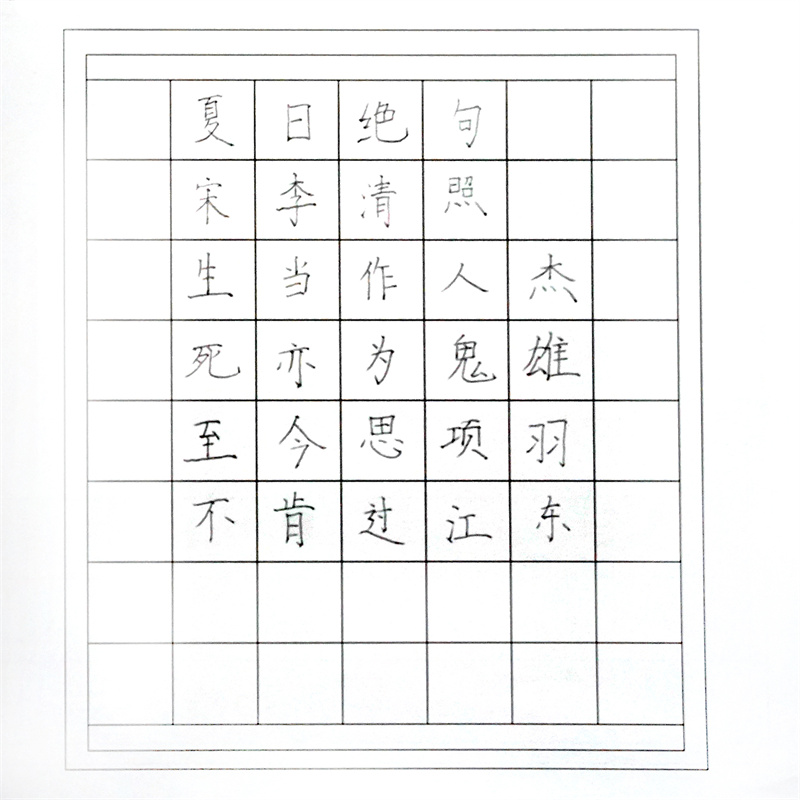 夏日绝句
宋李清照
生当作人杰
死亦为鬼雄
至今思项羽
不肯过江东